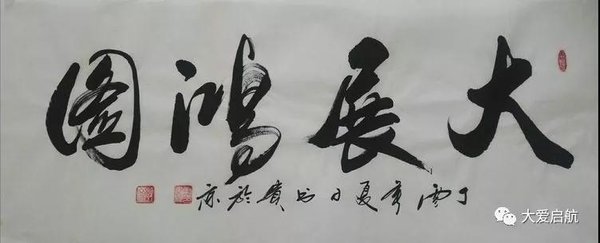 大展鸿图
丁酉年夏日书於
大爱启航